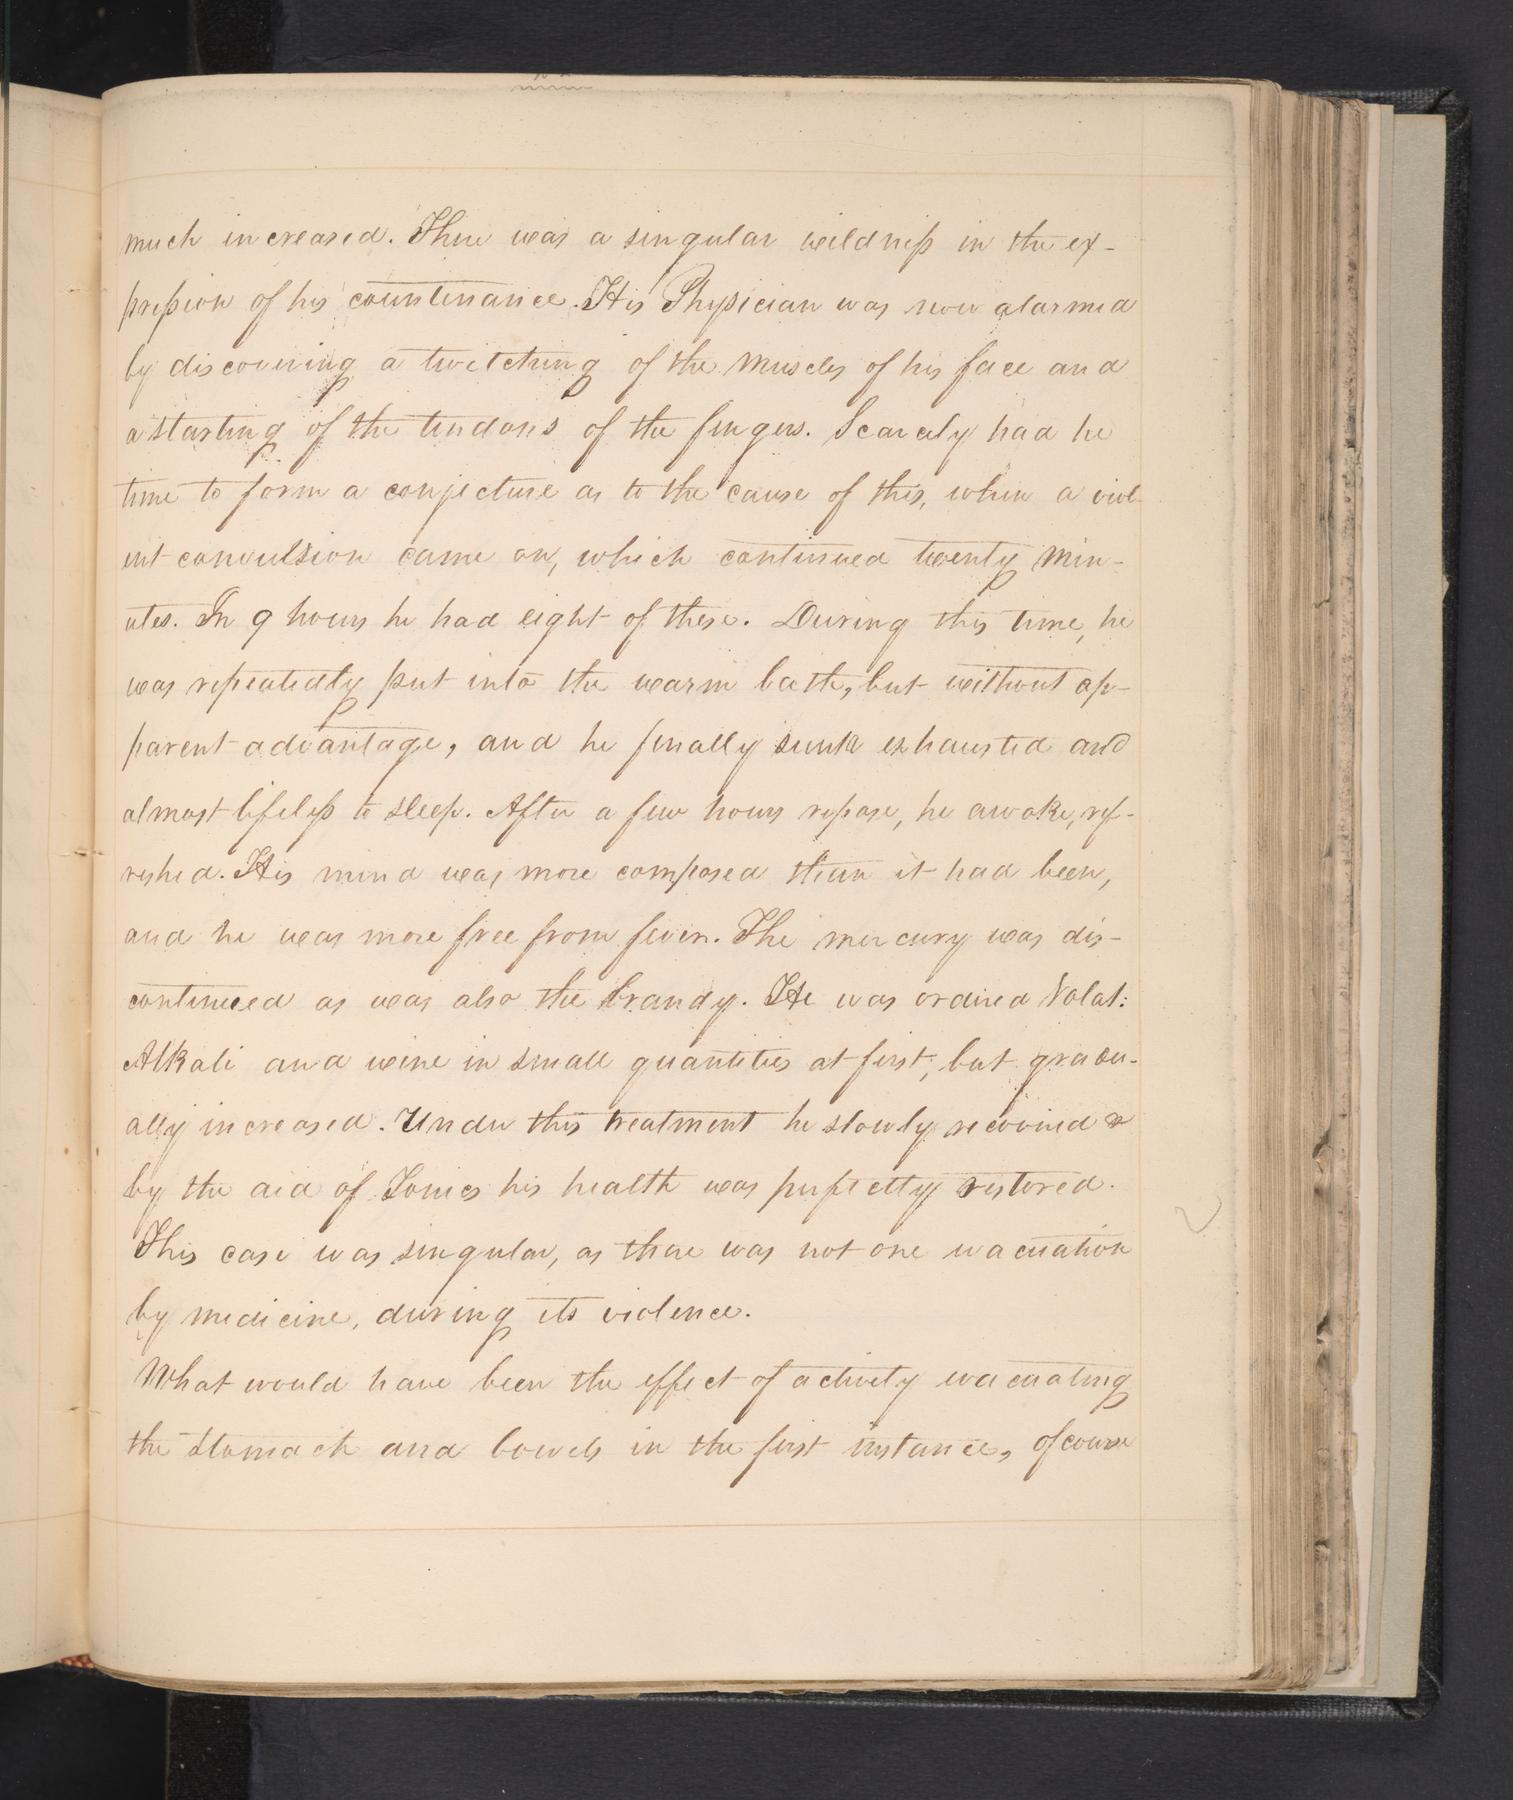 much increased. There was a singular wildness in the ex-
pression of his countenance. His Physician was now alarmed
by discovering a twitching of the muscles of his face and
a starting of the tendons of the fingers. Scarcely had he
time to form a conjecture as to the cause of this, when a viol-
ent convulsion came on, which continued twenty min-
utes. In 9 hours he had eight of these. During this time, he
was repeatedly put into the warm bath, but without ap-
parent advantage, and he finally sunk exhausted and
almost lifeless to sleep. After a few hours repose, he awoke, ref-
reshed. His mind was more composed than it had been,
and he was more free from fever. The mercury was dis-
continued as was also the brandy. He was ordered Volat:
Alkali and wine in small quantities at first, but gradu-
ally increased. Under this treatment he slowly recovered &
by the aid of Tonics his health was perfectly restored.
This case was singular, as there was not one evacuation
by medicine, during its violence.
What would have been the effect of actively evacuating
the stomach and bowels in the first instance, of course